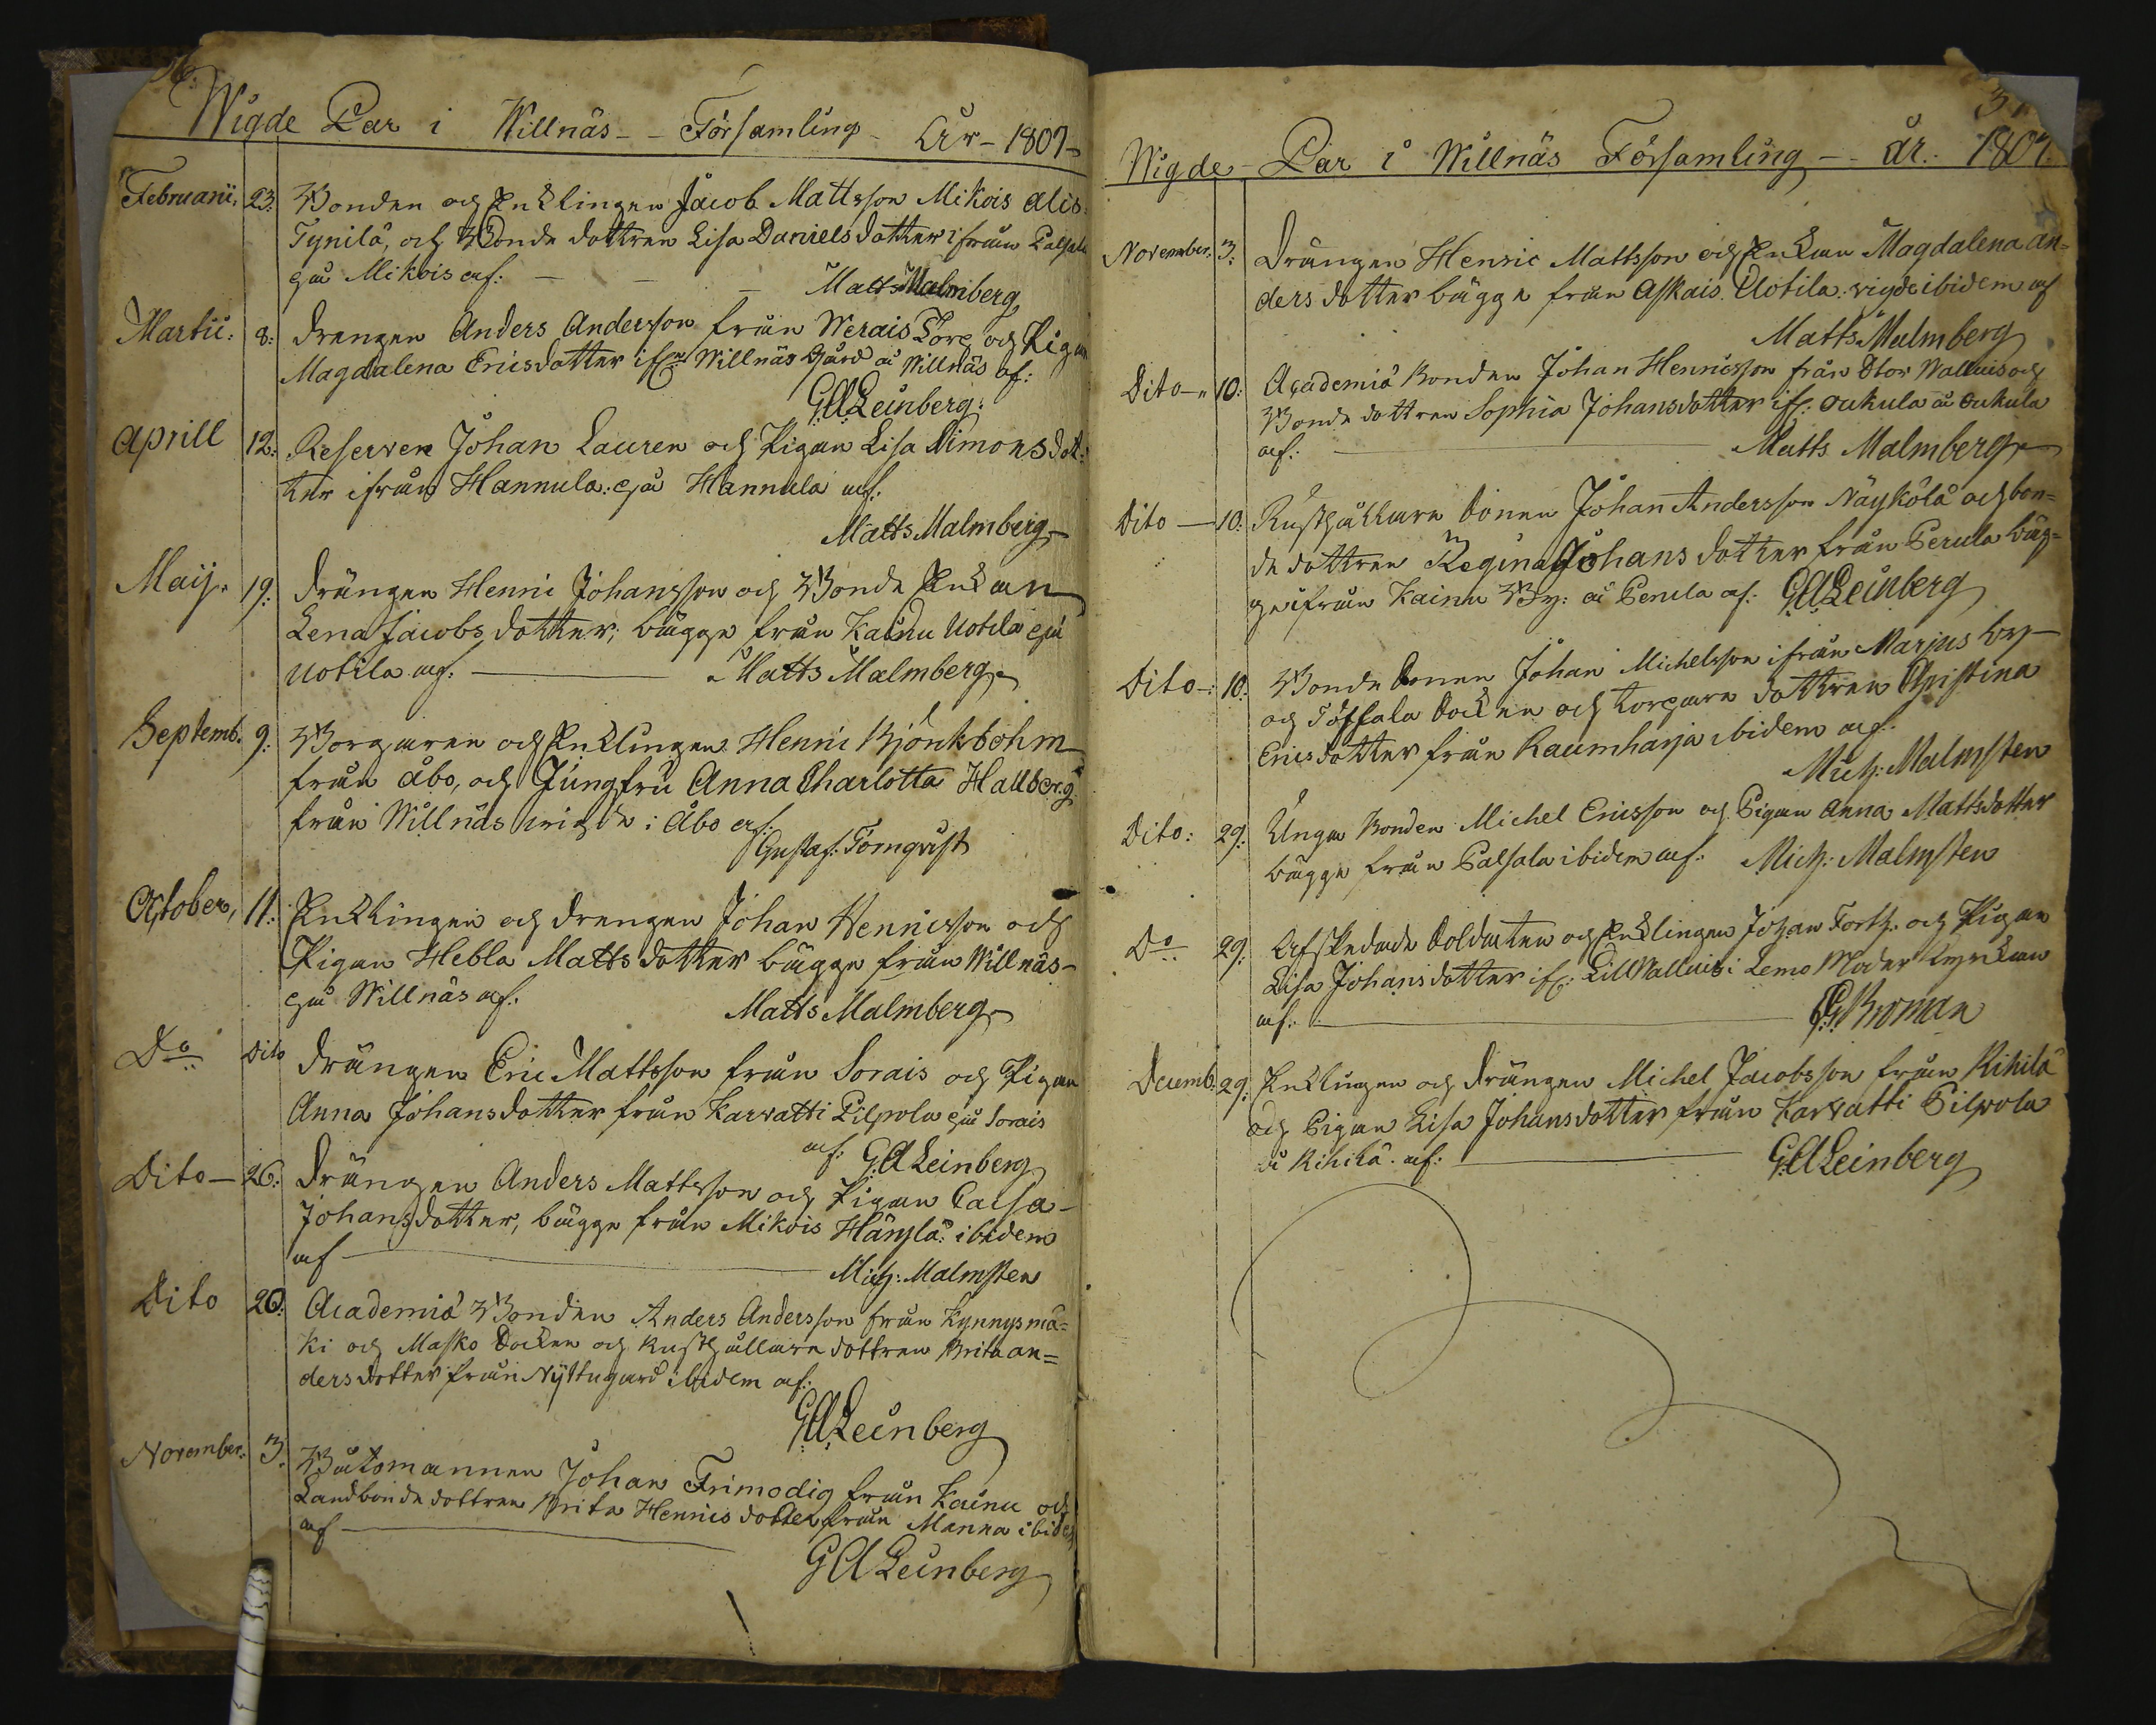 Wigde Par i Willnäs - - Församling - År - 1807 -
Februarii, 23. Bonden och Enklingen Jacob Mattsson Mikois alis.
Tynilä, och Bonde dottren Lisa Daniels dotter ifrån Palsala
på Mikois af: - - - Matts Malmberg
Martii: 8: Drengen Anders Andersson från Werais Torp och Pigan
Magdalena Ericsdotter ifrn Willnäs Gård å Willnäs af:
GA Leinberg:
Aprill 12: Reserven Johan Lauren och Pigan Lisa Simons dot:
ter ifrån Hannula: på Hannula af:
Matts Malmberg
Maij. 19: Drängen Henric Johansson och Bonde Enkan
Lena Jacobs dotter; bägge från Kainu Uotila på
Uotila af: Matts Malmberg
Septemb. 9: Borgaren och Enklingen Henric Björkbohm
från Åbo, och Jungfru Anna Charlotta Hallberg
från Willnäs wigde i Åbo af:
Gustaf: Törnqvist
October, 11: Enklingen och Drengen Johan Henricsson och
Pigan Hebla Matts dotter bägge från Willnäs -
på Willnäs af:
Matts Malmberg
Do Dito Drängen Eric Mattsson från Sorais och Pigan
Anna Johansdotter från Karvatti Pilpola på Sorais
af: GA Leinberg
Dito - 26: Drängen Anders Mattsson och Pigan Caisa -
Johansdotter, bägge från Mikois Härylä: ibidem
af Mich: Malmsten
Dito 26: Academiæ Bonden Anders Andersson från Kynnysmä=
ki och Masko Socken och Rusthållare dottren Brita An=
ders dotter från Nyttugård ibidem af:
GA Leinberg
November: 3. Båtsmannen Johan Frimodig från Kainu och
Landbonde dottren Brita Henrics dotter från Manna ibidem
af
GA Leinberg
Wigde Par i Willnäs Församling - - år. 1807.
November: 3: Drängen Henric Mattsson och Enkan Magdalena An=
ders dotter bägge från Askais Uotila: vigde ibidem af
Matts Malmberg
Dito - 10: Academiæ Bonden Johan Henricsson från Stor Walluis och
Bonde dottren Sophia Johansdotter ifr: Oukula å Oukula
af: Matts Malmberg
Dito - 10: Rusthållare Sonen Johan Andersson Näykölä och bon=
de dottren Regina Johans dotter från Perula bäg=
ge ifrån Kainu By: å Perula af: GA Leinberg
Dito -: 10: Bonde Sonen Johan Michelsson ifrån Marjus by
och Töffsala Socken och torpare dottren Christina
Ericsdotter från Raumharja ibidem af:
Mich: Malmsten
Dito: 29: Unga Bonden Michel Ericsson och Pigan Anna Mattsdotter
bägge från Palsala ibidem af: Mich: Malmsten
Do 29: Afskedade Soldaten och Enklingen Johan Forth. och Pigan
Lisa Johansdotter ifr: Lill Walluis i Lemo Moder Kyrkan
af: Broman
Decemb. 29: Enklingen och Drängen Michel Jacobsson från Kihilä
och Pigan Lisa Johansdotter från Karvatti Pilpola
å Kihilä af: GA Leinberg